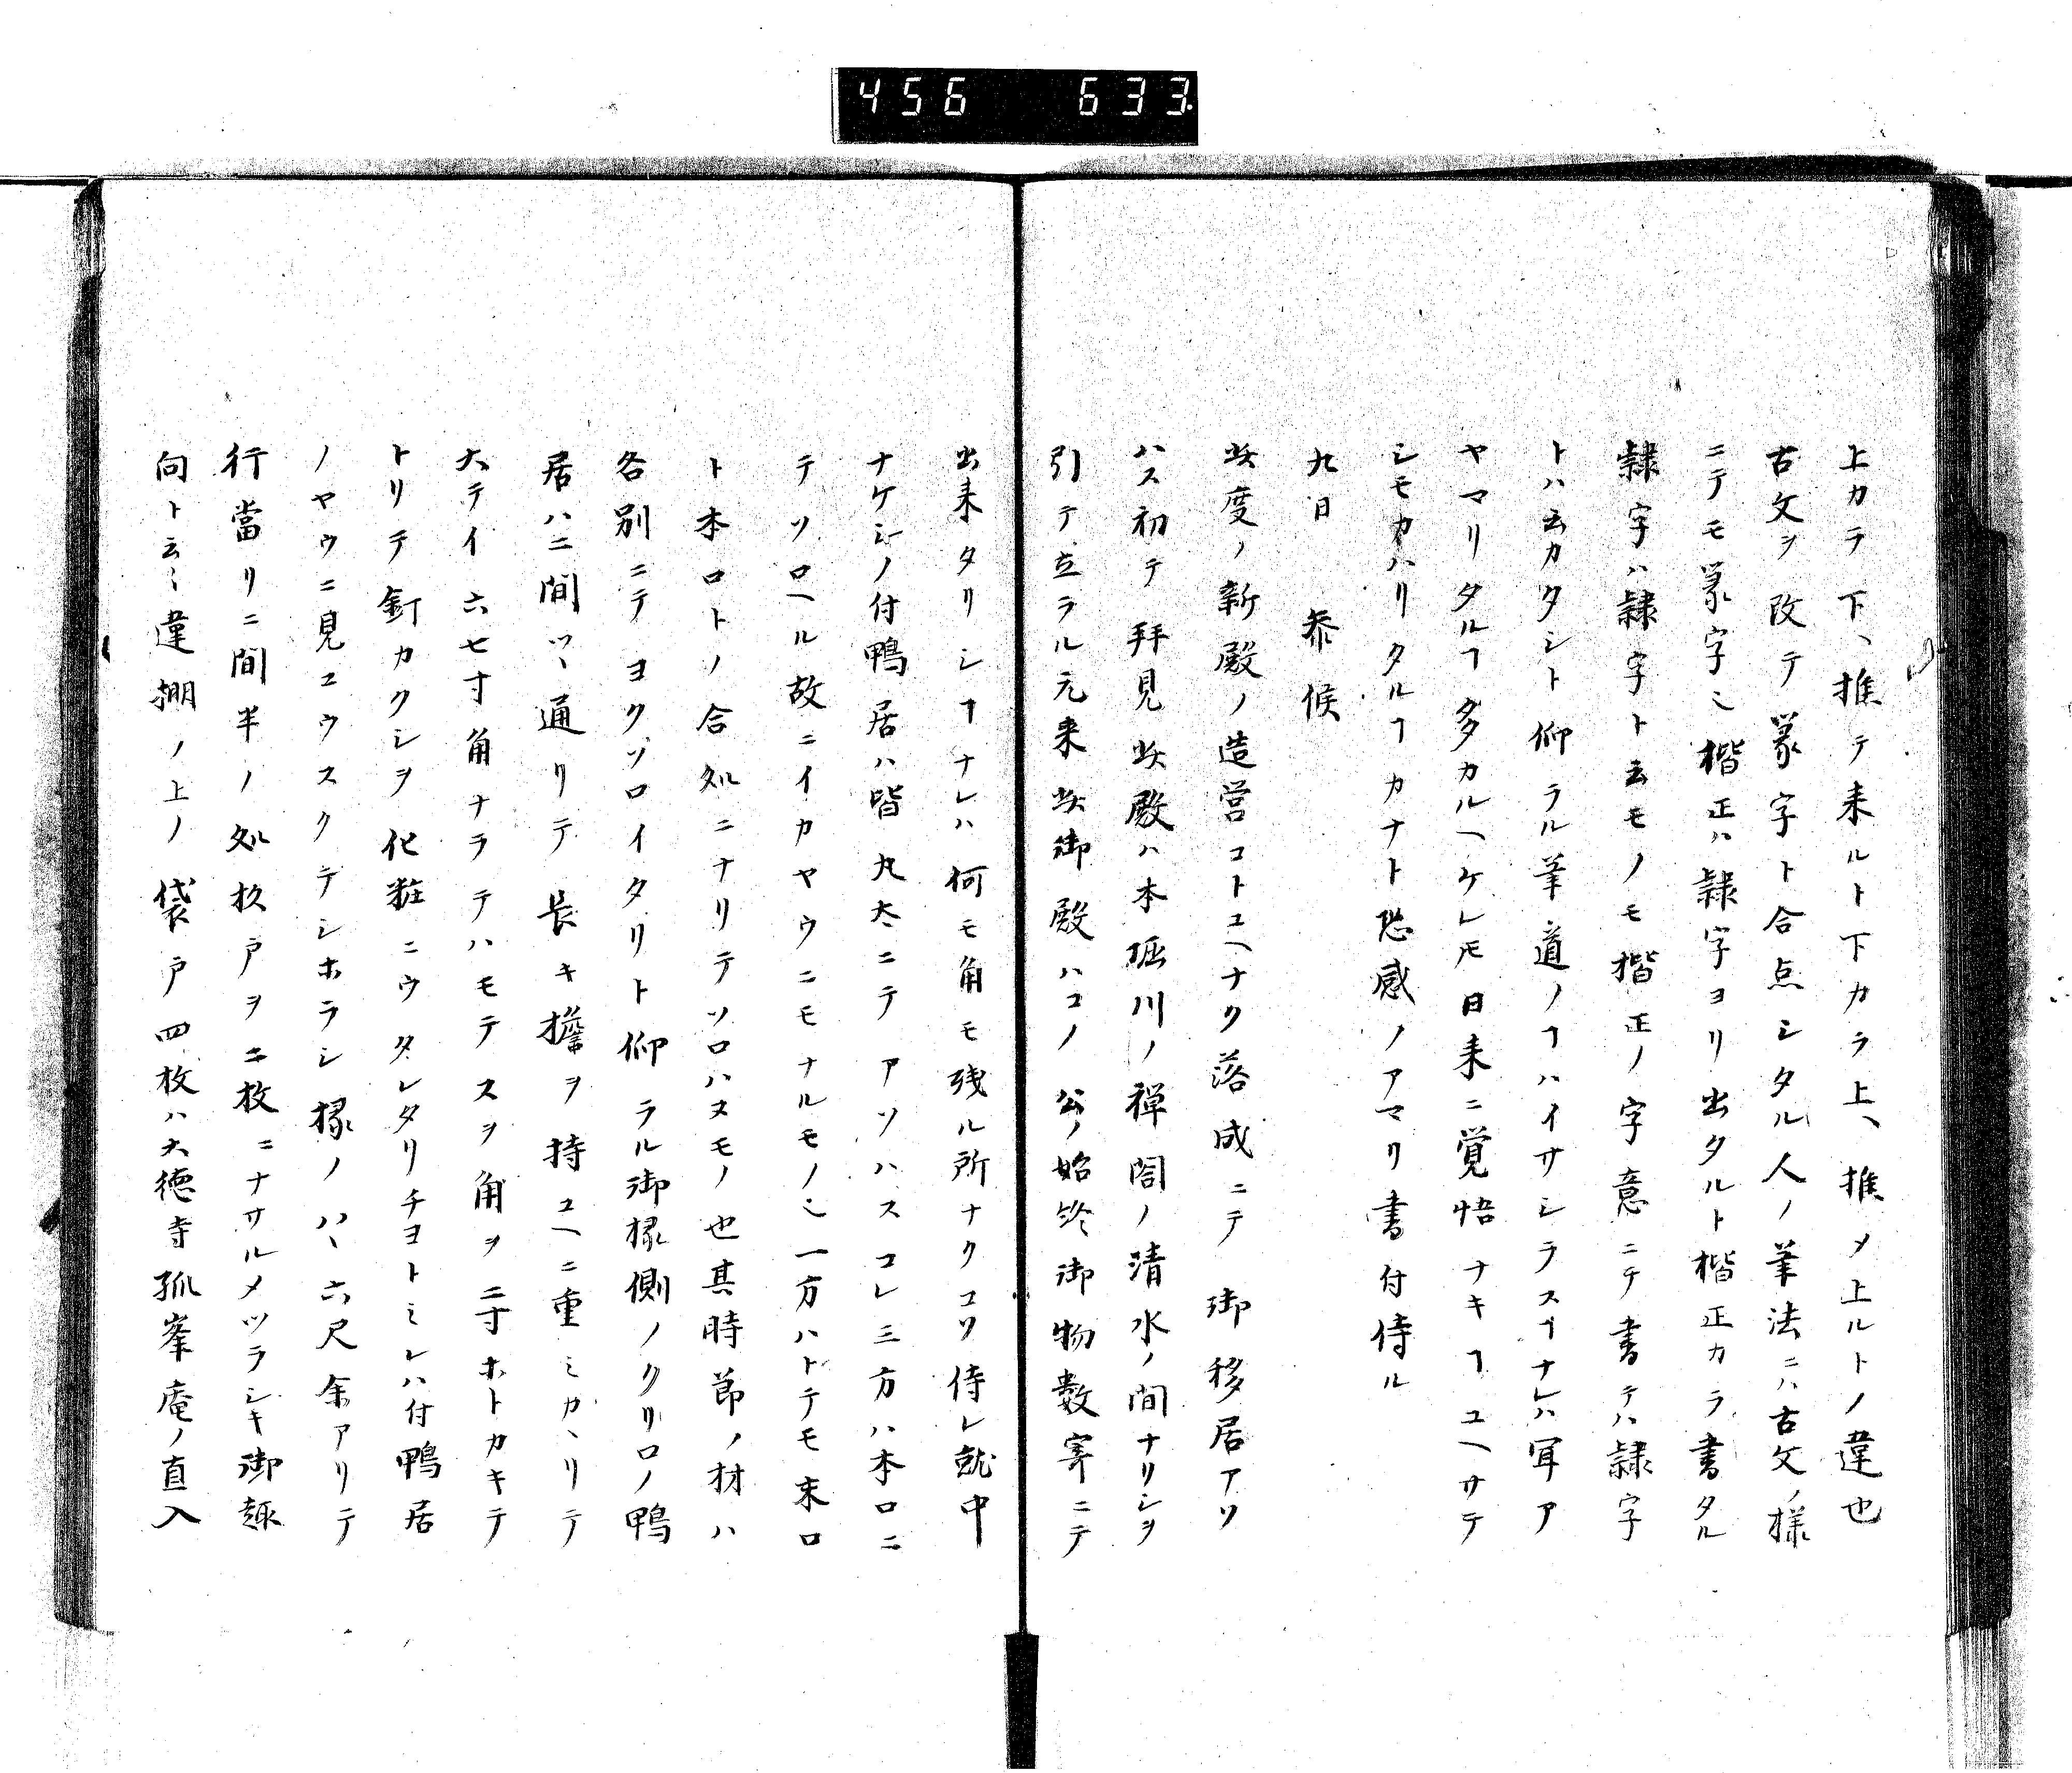 456 633
上カラ下ヽ推テ来ルト下カラ上ヽ推メ上ルトノ違也
古文ヲ改テ篆字ト合点シタル人ノ筆法ニハ古文ノ様
ニテモ篆字ニ楷正ハ隷字ヨリ出タルト楷正カラ書タル
隷字ハ隷字ト云モノモ楷正ノ字意ニテ書テハ隷字
トハ云カタシト仰ラル筆道ノヿハイサシラスヿナレハ写ア
ヤマリタルヿ多カルヘケレ𪜈日来ニ覚悟ナキヿユヘサテ
シモカハリタルヿカナト恐感ノアマリ書付侍ル
九日 参候
此度ノ新殿ノ造営コトユヘナク落成ニテ御移居アソ
ハス初テ拝見此殿ハ本堀川ノ禅閤ノ清水ノ間ナリシヲ
引テ立ラル元来此御殿ハコノ公ノ始終御物数寄ニテ
出来タリシヿナレハ何モ角モ残ル所ナクコソ侍レ就中
ナケシノ付鴨居ハ皆丸太ニテアソハスコレ三方ハ本口ニ
テソロヘル故ニイカヤウニモナルモノ也一方ハトテモ末口
ト本口トノ合処ニナリテソロハヌモノ也其時節ノ材ハ
各別ニテヨクソロイタリト仰ラル御椽側ノクリロノ鴨
居ハ二間ツヽ通リテ長キ擔ヲ持ユヘニ重ミカヽリテ
大テイ六七寸角ナラテハモテスヲ角ヲ二寸ホトカキテ
トリテ釘カクシヲ化粧ニウタレタリチヨトミレハ付鴨居
ノヤウニ見ユウスクテシホラシ椽ノハヽ六尺余アリテ
行當リ二間半ノ処杉戸ヲ二枚ニナサルメツラシキ御趣
向ト云々違棚ノ上ノ袋戸四枚ハ大徳寺孤峯庵ノ直入